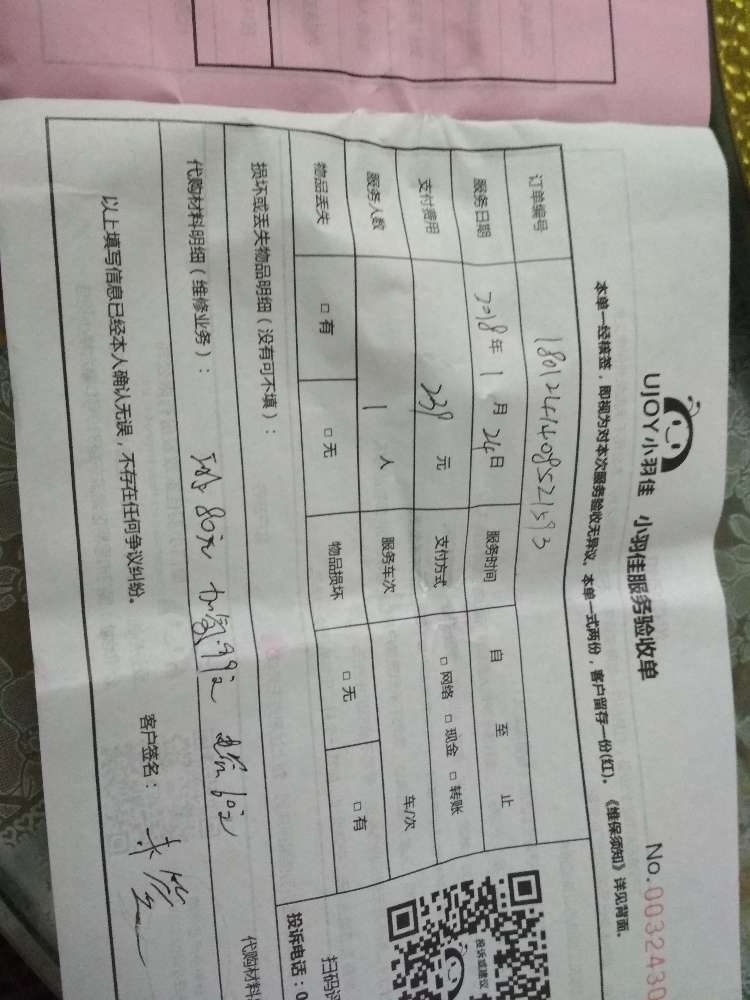 UJOY小羽佳 小羽佳服务验收单 No.0032430
本单一经核签，即视为对本次服务验收无异议、本单一式两份，客户留存一份(红)。《维保须知》详见背面。
订单编号 1801241408521593
服务日期 2018年 1 月 24日 服务时间 自 至 止
支付费用 239 元 支付方式 □网络 □现金 □转账
服务人数 1 人 服务车次 车/次
物品丢失 □有 □无 物品损坏 □无 □有
损坏或丢失物品明细（没有可不填）：
代购材料明细（维修业务）： 80元 加氟99元 60元
代购材料
以上填写信息已经本人确认无误，不存在任何争议纠纷。 客户签名：
投诉或建议
扫码
投诉电话：0